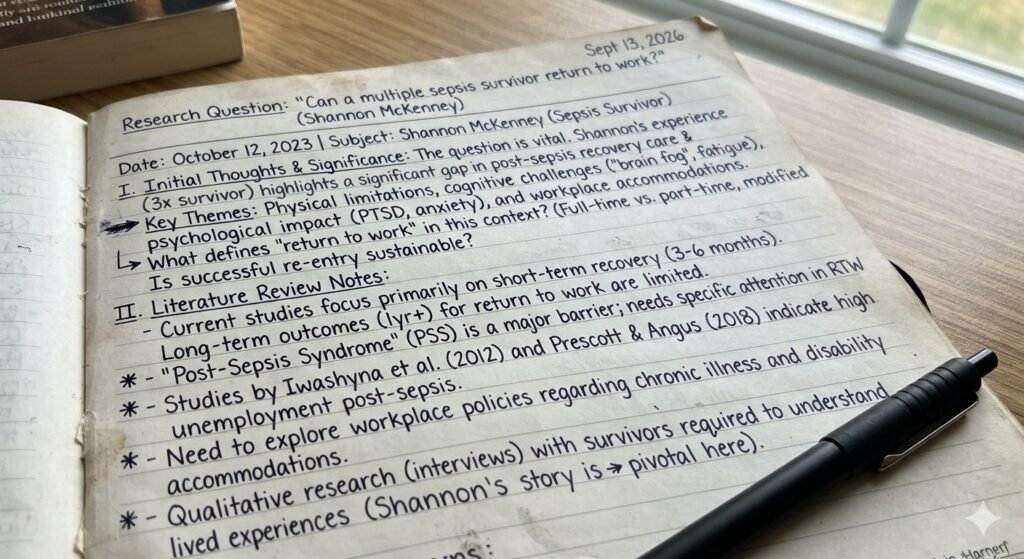 and bakimal
Sept 13, 2026
Research Question: "Can a multiple sepsis survivor return to work?"
(Shannon McKenney)
Date: October 12, 2023 | Subject: Shannon McKenney (Sepsis Survivor)
I. Initial Thoughts & Significance: The question is vital. Shannon's experience
(3x survivor) highlights a significant gap in post-sepsis recovery care &
→ Key Themes: Physical limitations, cognitive challenges ("brain fog", fatigue),
psychological impact (PTSD, anxiety), and workplace accommodations.
↳ What defines "return to work" in this context? (Full-time vs. part-time, modified
Is successful re-entry sustainable?
II. Literature Review Notes:
- Current studies focus primarily on short-term recovery (3-6 months).
Long-term outcomes (1yr+) for return to work are limited.
* - "Post-Sepsis Syndrome" (PSS) is a major barrier; needs specific attention in RTW
* - Studies by Iwashyna et al. (2012) and Prescott & Angus (2018) indicate high
unemployment post-sepsis.
* - Need to explore workplace policies regarding chronic illness and disability
accommodations.
* - Qualitative research (interviews) with survivors required to understand
lived experiences (Shannon's story is → pivotal here).